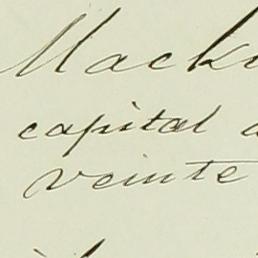 Mack
capital
veinte